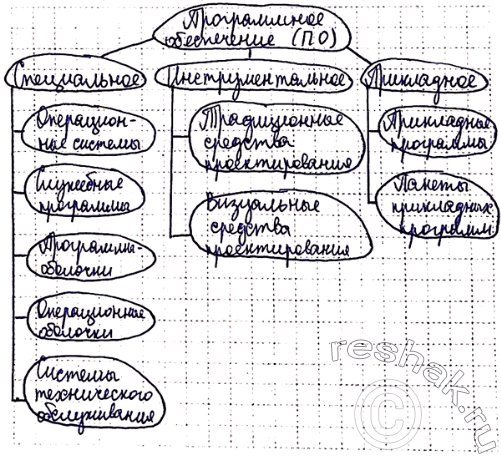 Программное
обеспечение (ПО)
Специальное
Инструментальное
Прикладное
Операцион-
ные системы
Служебные
программы
Программы-
оболочки
Операционные
оболочки
Системы
технического
обслуживания
Традиционные
средства
проектирования
Визуальные
средства
проектирования
Прикладные
программы
Пакеты
прикладных
программ
reshak.ru
©